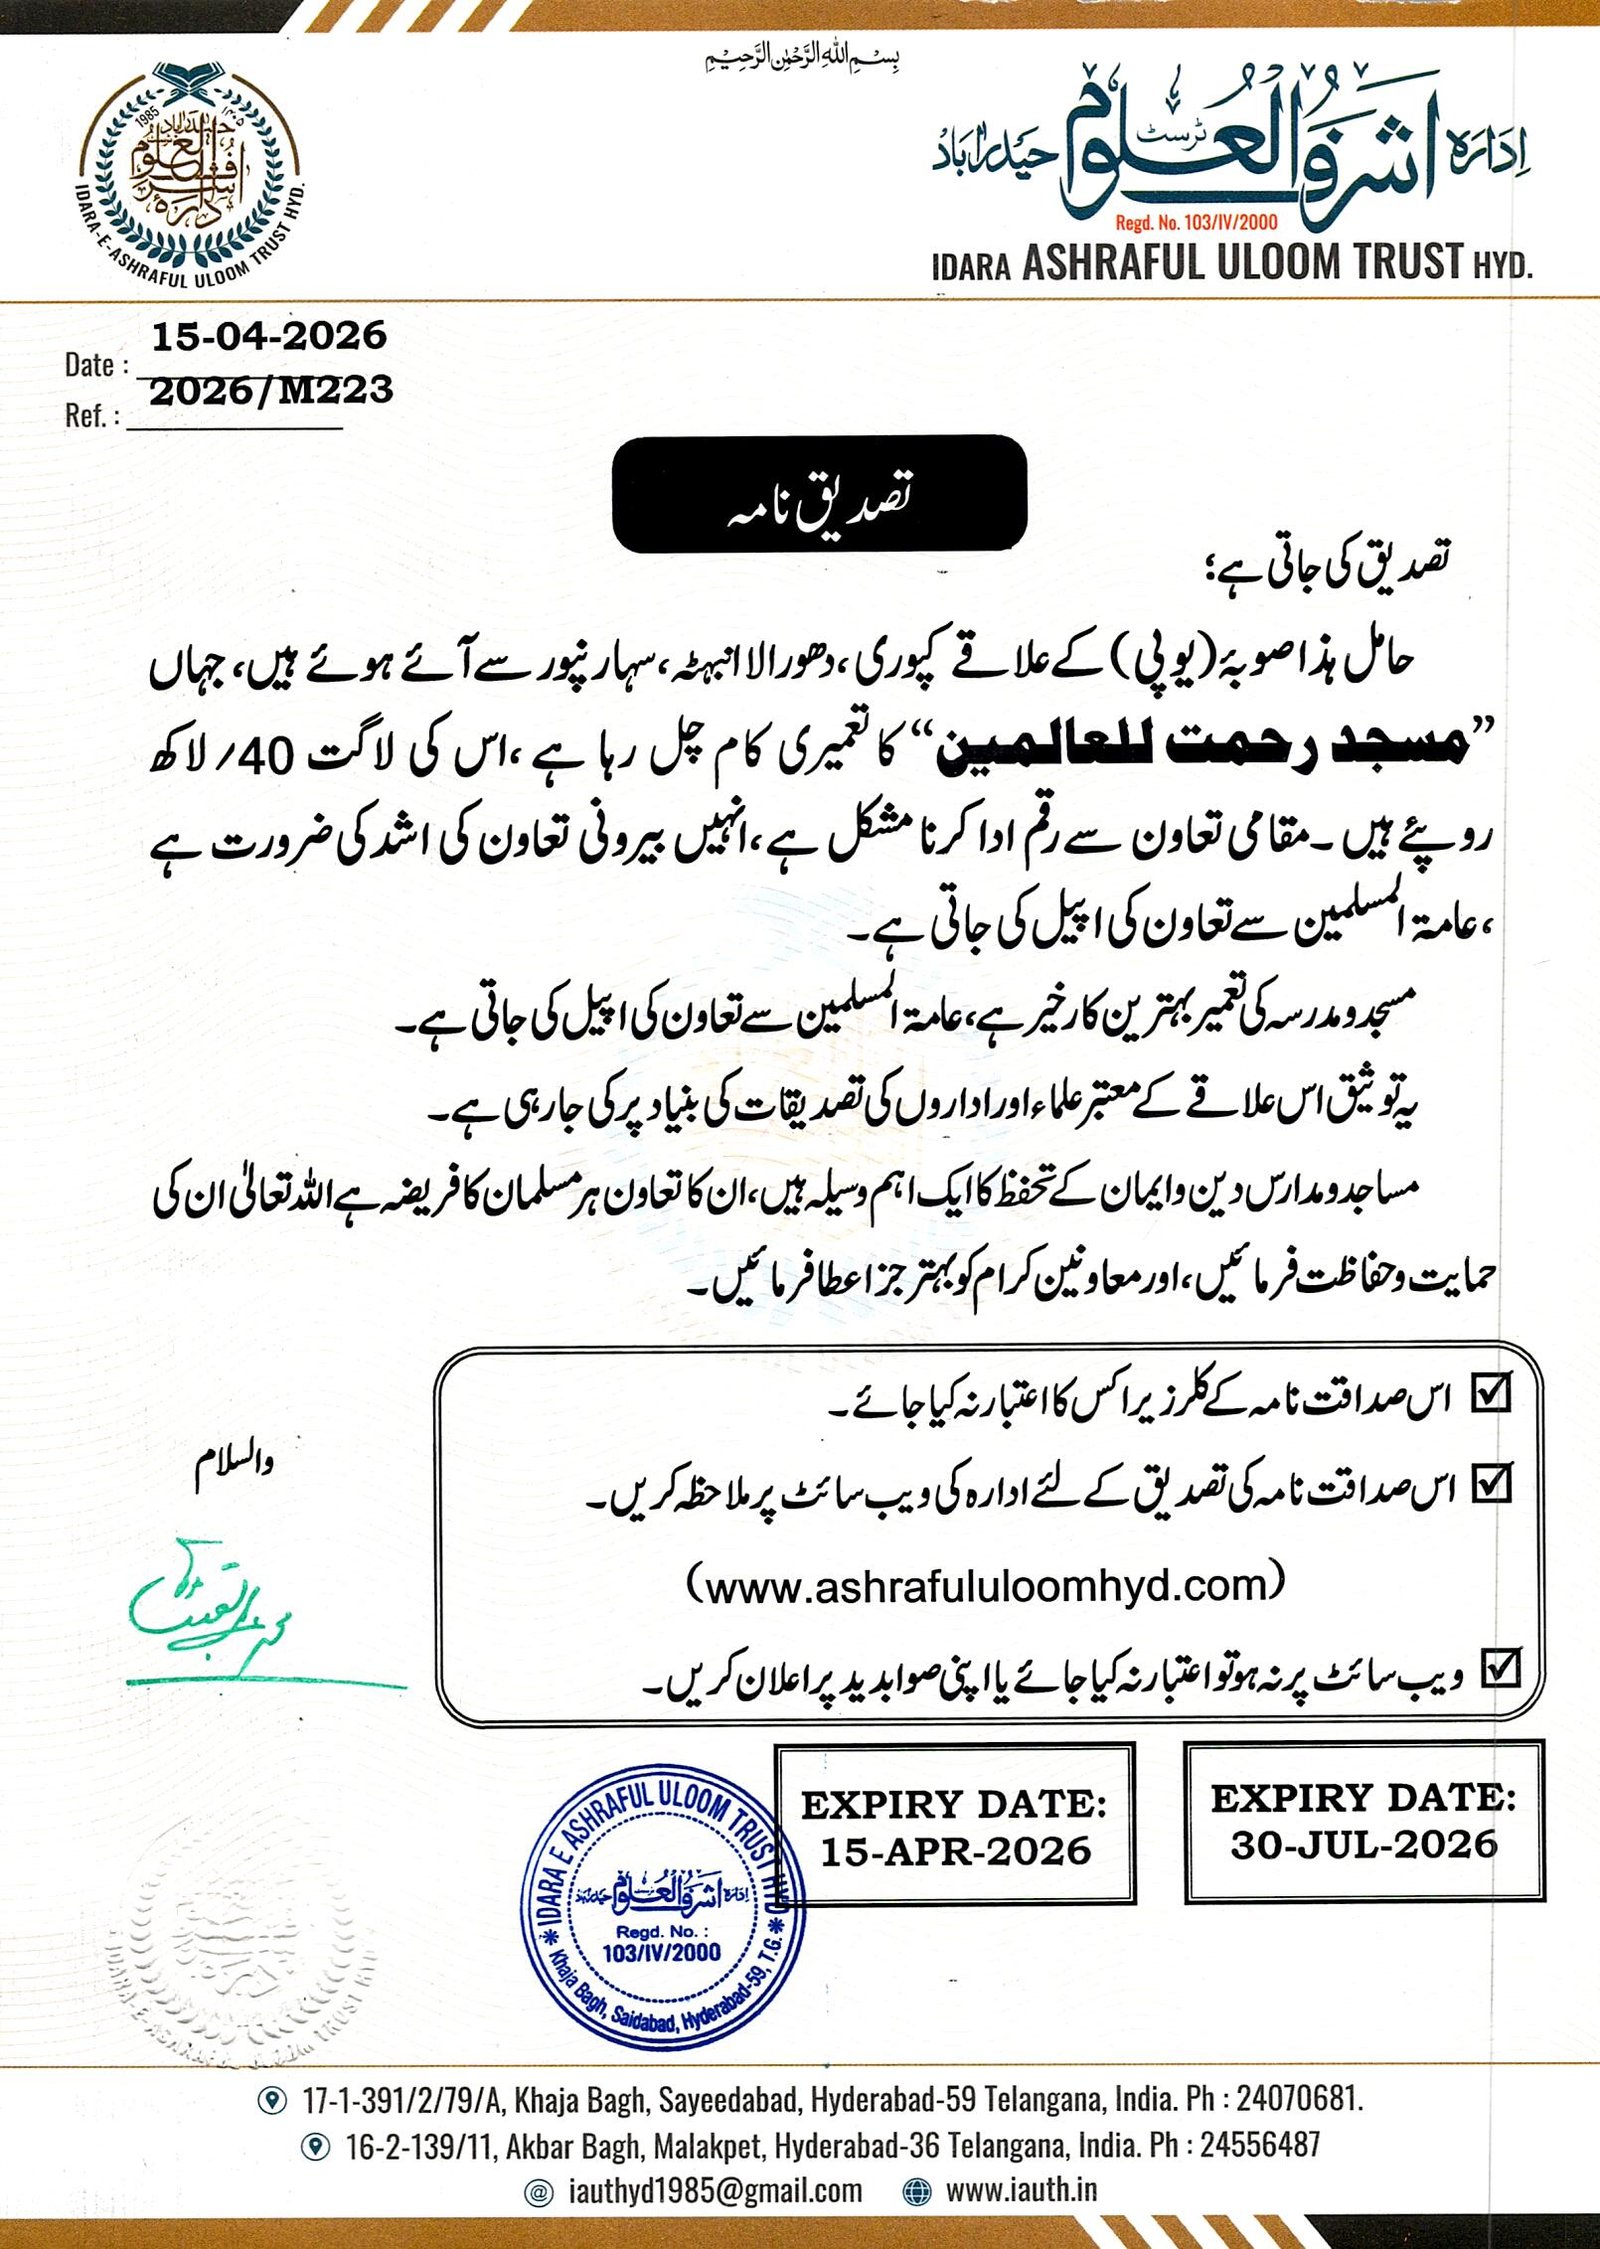 بِسْمِ اللهِ الرَّحْمٰنِ الرَّحِيْمِ
1985
IDARA-E-ASHRAFUL ULOOM TRUST HYD.
ادارہ اشرف العلوم ٹرسٹ حیدرآباد
Regd. No. 103/IV/2000
IDARA ASHRAFUL ULOOM TRUST HYD.
Date : 15-04-2026
Ref. : 2026/M223
تصدیق نامہ
تصدیق کی جاتی ہے؛
حامل ہذا صوبۂ (یوپی) کے علاقے کپوری، دھورالا انبہٹہ، سہارنپور سے آئے ہوئے ہیں، جہاں
”مسجد رحمت للعالمین“ کا تعمیری کام چل رہا ہے، اس کی لاگت 40/ لاکھ
روپئے ہیں۔ مقامی تعاون سے رقم ادا کرنا مشکل ہے، انہیں بیرونی تعاون کی اشد کی ضرورت ہے
، عامۃ المسلمین سے تعاون کی اپیل کی جاتی ہے۔
مسجد و مدرسہ کی تعمیر بہترین کار خیر ہے، عامۃ المسلمین سے تعاون کی اپیل کی جاتی ہے۔
یہ توثیق اس علاقے کے معتبر علماء اور اداروں کی تصدیقات کی بنیاد پر کی جارہی ہے۔
مساجد و مدارس دین و ایمان کے تحفظ کا ایک اہم وسیلہ ہیں، ان کا تعاون ہر مسلمان کا فریضہ ہے اللہ تعالیٰ ان کی
حمایت و حفاظت فرمائیں، اور معاونین کرام کو بہتر جزا عطا فرمائیں۔
اس صداقت نامہ کے کلر زیراکس کا اعتبار نہ کیا جائے۔
اس صداقت نامہ کی تصدیق کے لئے ادارہ کی ویب سائٹ پر ملاحظہ کریں۔
(www.ashrafululoomhyd.com)
ویب سائٹ پر نہ ہو تو اعتبار نہ کیا جائے یا اپنی صوابدید پر اعلان کریں۔
والسلام
EXPIRY DATE:
15-APR-2026
EXPIRY DATE:
30-JUL-2026
IDARA E ASHRAFUL ULOOM TRUST HYD
ادارہ اشرف العلوم حیدرآباد
Regd. No. :
103/IV/2000
Khaja Bagh, Saidabad, Hyderabad-59, T.G.
17-1-391/2/79/A, Khaja Bagh, Sayeedabad, Hyderabad-59 Telangana, India. Ph : 24070681.
16-2-139/11, Akbar Bagh, Malakpet, Hyderabad-36 Telangana, India. Ph : 24556487
iauthyd1985@gmail.com www.iauth.in